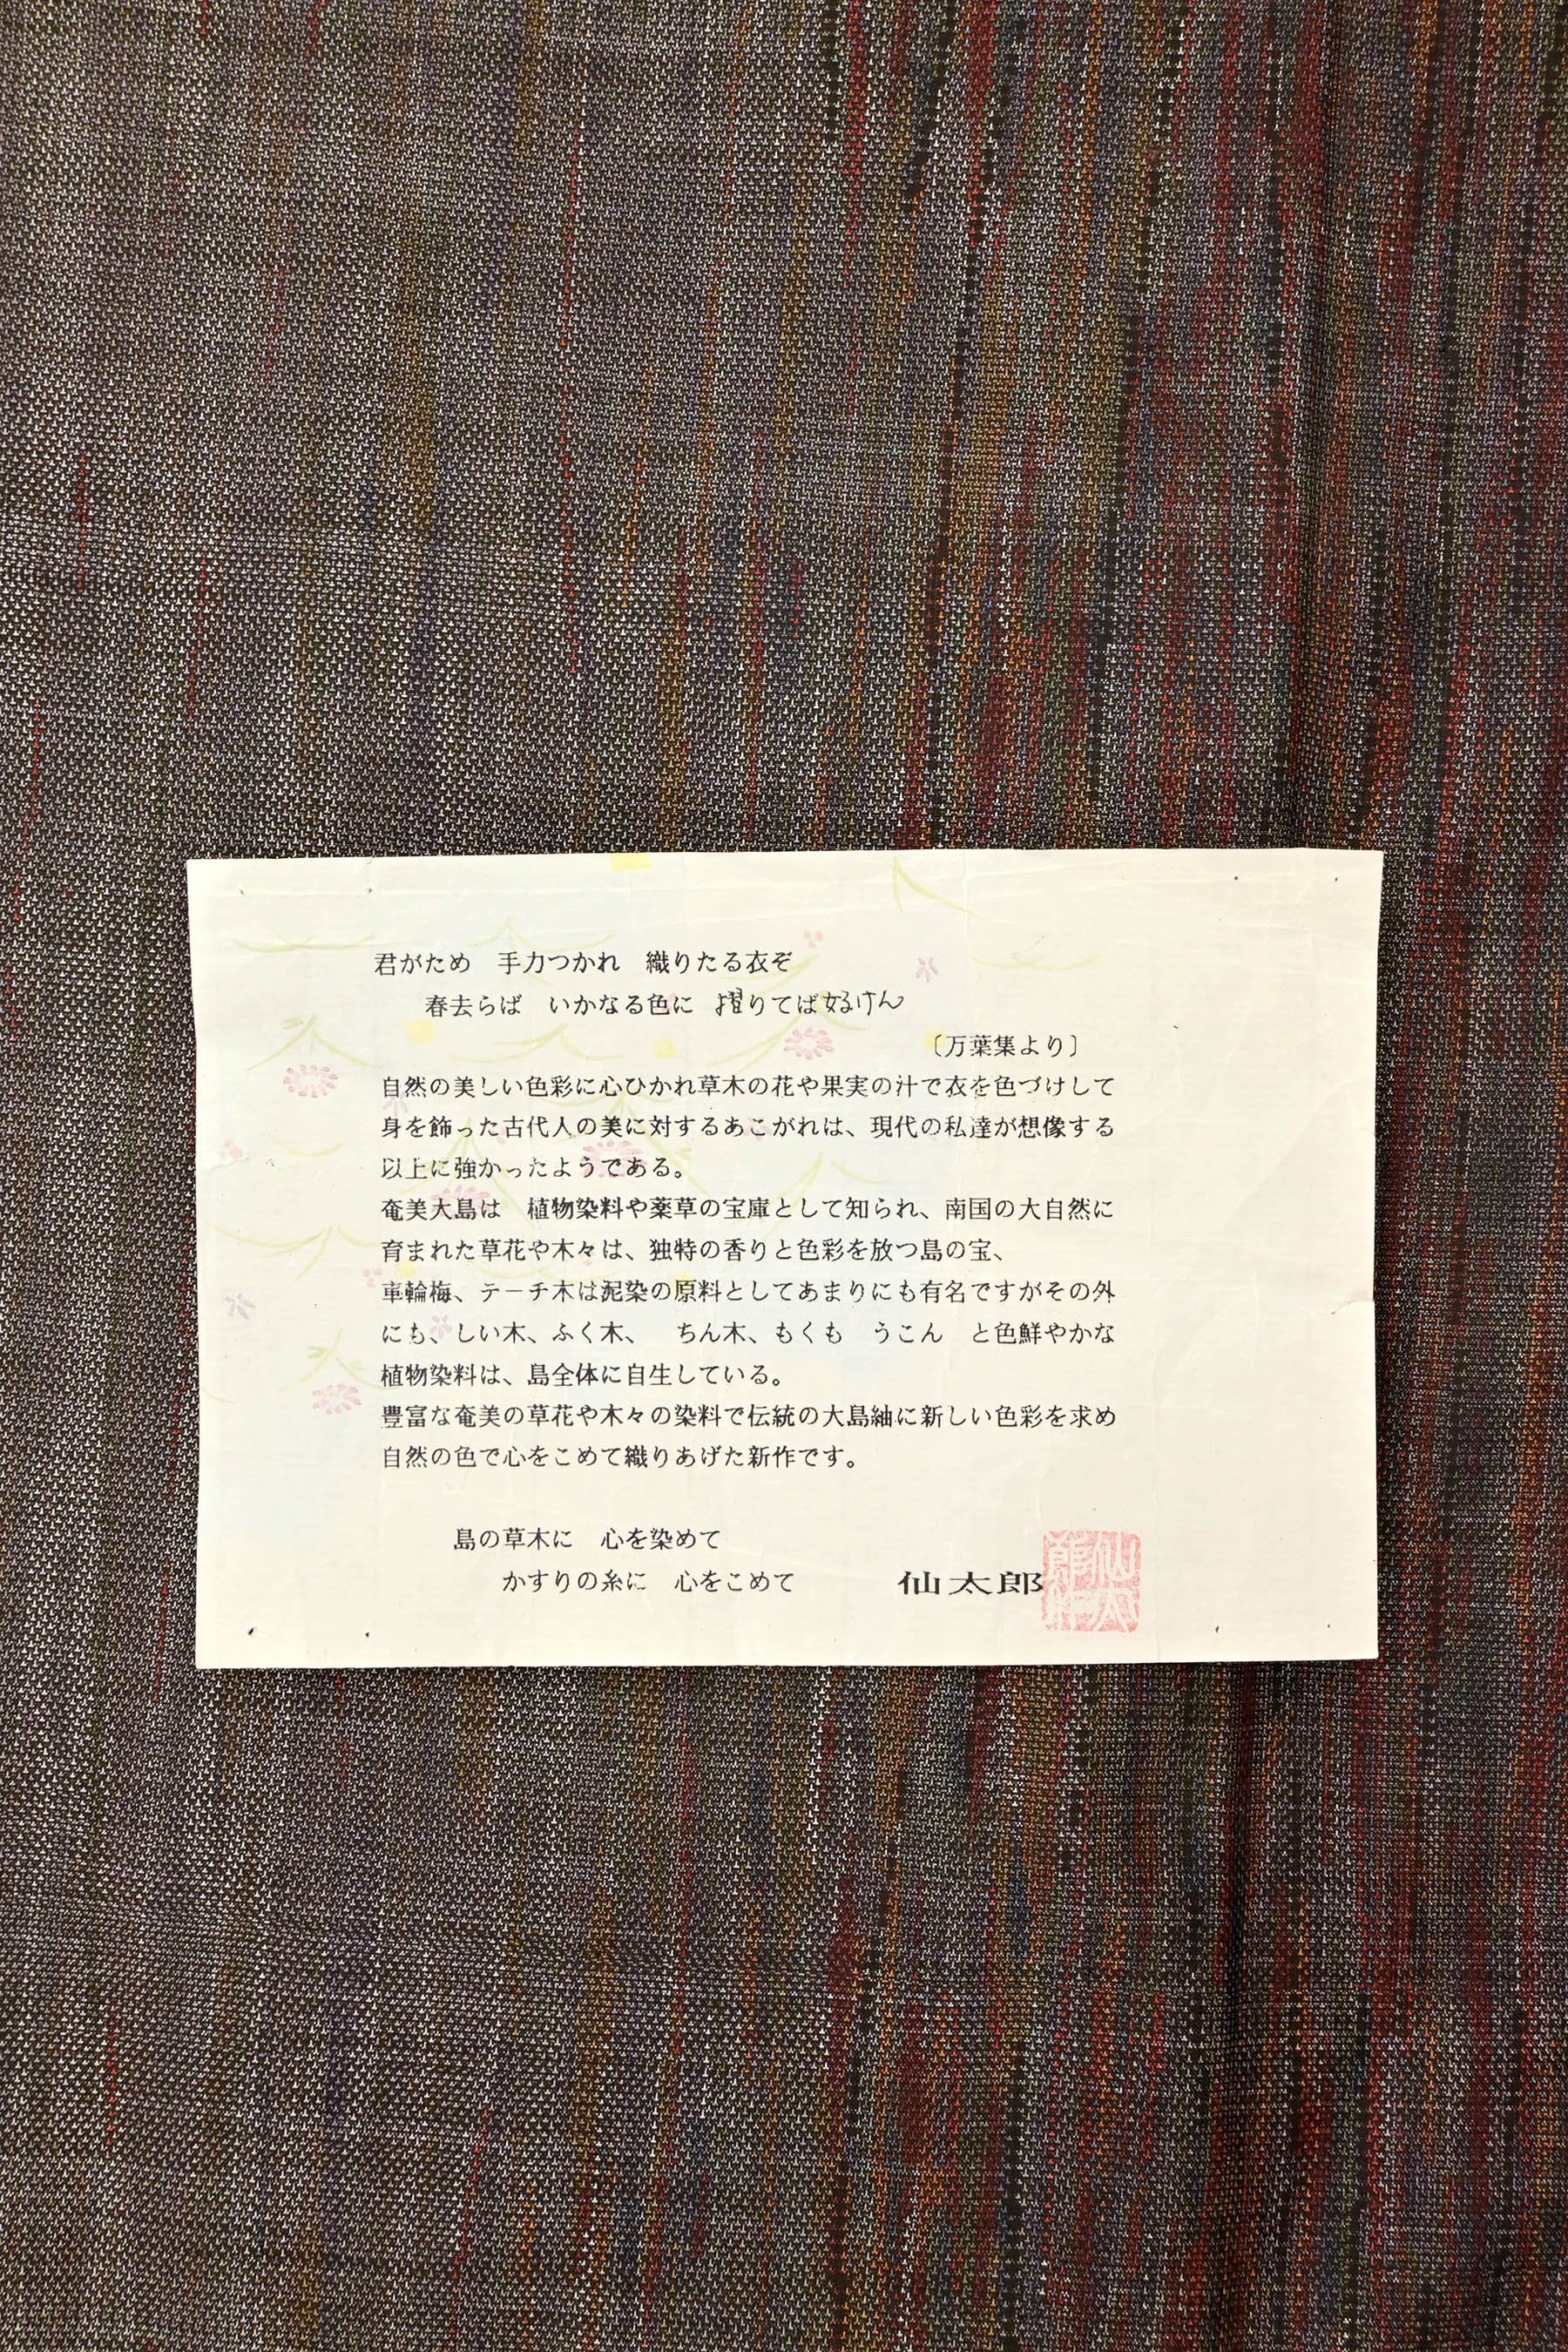 君がため　手力つかれ　織りたる衣ぞ
春去らば　いかなる色に　摺りてば好けん
〔万葉集より〕
自然の美しい色彩に心ひかれ草木の花や果実の汁で衣を色づけして
身を飾った古代人の美に対するあこがれは、現代の私達が想像する
以上に強かったようである。
奄美大島は　植物染料や薬草の宝庫として知られ、南国の大自然に
育まれた草花や木々は、独特の香りと色彩を放つ島の宝、
車輪梅、テーチ木は泥染の原料としてあまりにも有名ですがその外
にも、しい木、ふく木、　ちん木、もくも　うこん　と色鮮やかな
植物染料は、島全体に自生している。
豊富な奄美の草花や木々の染料で伝統の大島紬に新しい色彩を求め
自然の色で心をこめて織りあげた新作です。
島の草木に　心を染めて
かすりの糸に　心をこめて
仙太郎